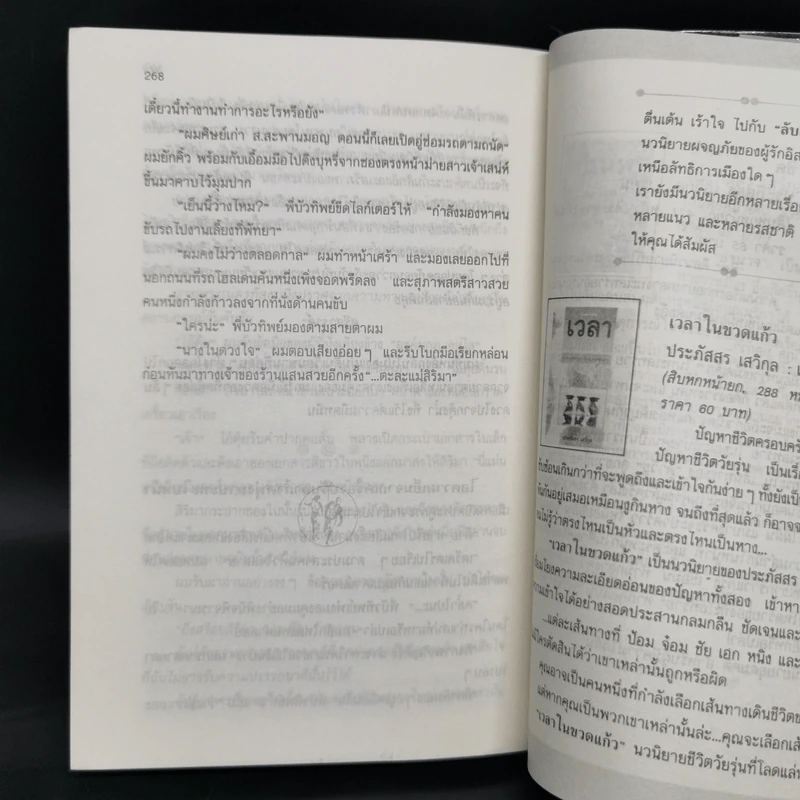 268
เดี๋ยวนี้ทำงานทำการอะไรหรือยัง"
"ผมศิษย์เก่า ส.สะพานมอญ ตอนนี้ก็เลยเปิดอู่ซ่อมรถตามถนัด"
ผมยักคิ้ว พร้อมกับเอื้อมมือไปดึงบุหรี่จากซองตรงหน้าม่ายสาวเจ้าเสน่ห์
ขึ้นมาคาบไว้มุมปาก
"เย็นนี้ว่างไหม?" พี่บัวทิพย์ขีดไลท์เตอร์ให้ "กำลังมองหาคน
ขับรถไปงานเลี้ยงที่พัทยา"
"ผมคงไม่ว่างตลอดกาล" ผมทำหน้าเศร้า และมองเลยออกไปที่
นอกถนนที่รถโฮลเดนคันหนึ่งเพิ่งจอดพรืดลง และสุภาพสตรีสาวสวย
คนหนึ่งกำลังก้าวลงจากที่นั่งด้านคนขับ
"ใครน่ะ" พี่บัวทิพย์มองตามสายตาผม
"นางในดวงใจ" ผมตอบเสียงอ่อยๆ และรีบโบกมือเรียกหล่อน
ก่อนหันมาทางเจ้าของร้านแสนสวยอีกครั้ง "...ตะละแม่สิริมา"
ตื่นเต้น เร้าใจ ไปกับ "ลับ
นวนิยายผจญภัยของผู้รักอิส
เหนือลัทธิการเมืองใดๆ
เรายังมีนวนิยายอีกหลายเรื่อ
หลายแนว และหลายรสชาติ
ให้คุณได้สัมผัส
เวลา
เวลาในขวดแก้ว
ประภัสสร เสวิกุล :
(สิบหกหน้ายก, 288 ห
ราคา 60 บาท)
ปัญหาชีวิตครอบครั
ปัญหาชีวิตวัยรุ่น เป็นเรื่
ซับซ้อนเกินกว่าที่จะพูดถึงและเข้าใจกันง่ายๆ ทั้งยังเป็
กันอยู่เสมอเหมือนงูกินหาง จนถึงที่สุดแล้ว ก็อาจจ
ไม่รู้ว่าตรงไหนเป็นหัวและตรงไหนเป็นหาง...
"เวลาในขวดแก้ว" เป็นนวนิยายของประภัสสร
โยงความละเอียดอ่อนของปัญหาทั้งสอง เข้าหา
ความเข้าใจได้อย่างสอดประสานกลมกลืน ชัดเจนและ
...แต่ละเส้นทางที่ ป้อม จ๋อม ชัย เอก หนิง และ
ใครตัดสินได้ว่าเขาเหล่านั้นถูกหรือผิด
คุณอาจเป็นคนหนึ่งที่กำลังเลือกเส้นทางเดินชีวิตข
แต่หากคุณเป็นพวกเขาเหล่านั้นล่ะ...คุณจะเลือกเส้
"เวลาในขวดแก้ว" นวนิยายชีวิตวัยรุ่นที่โลดแล่น